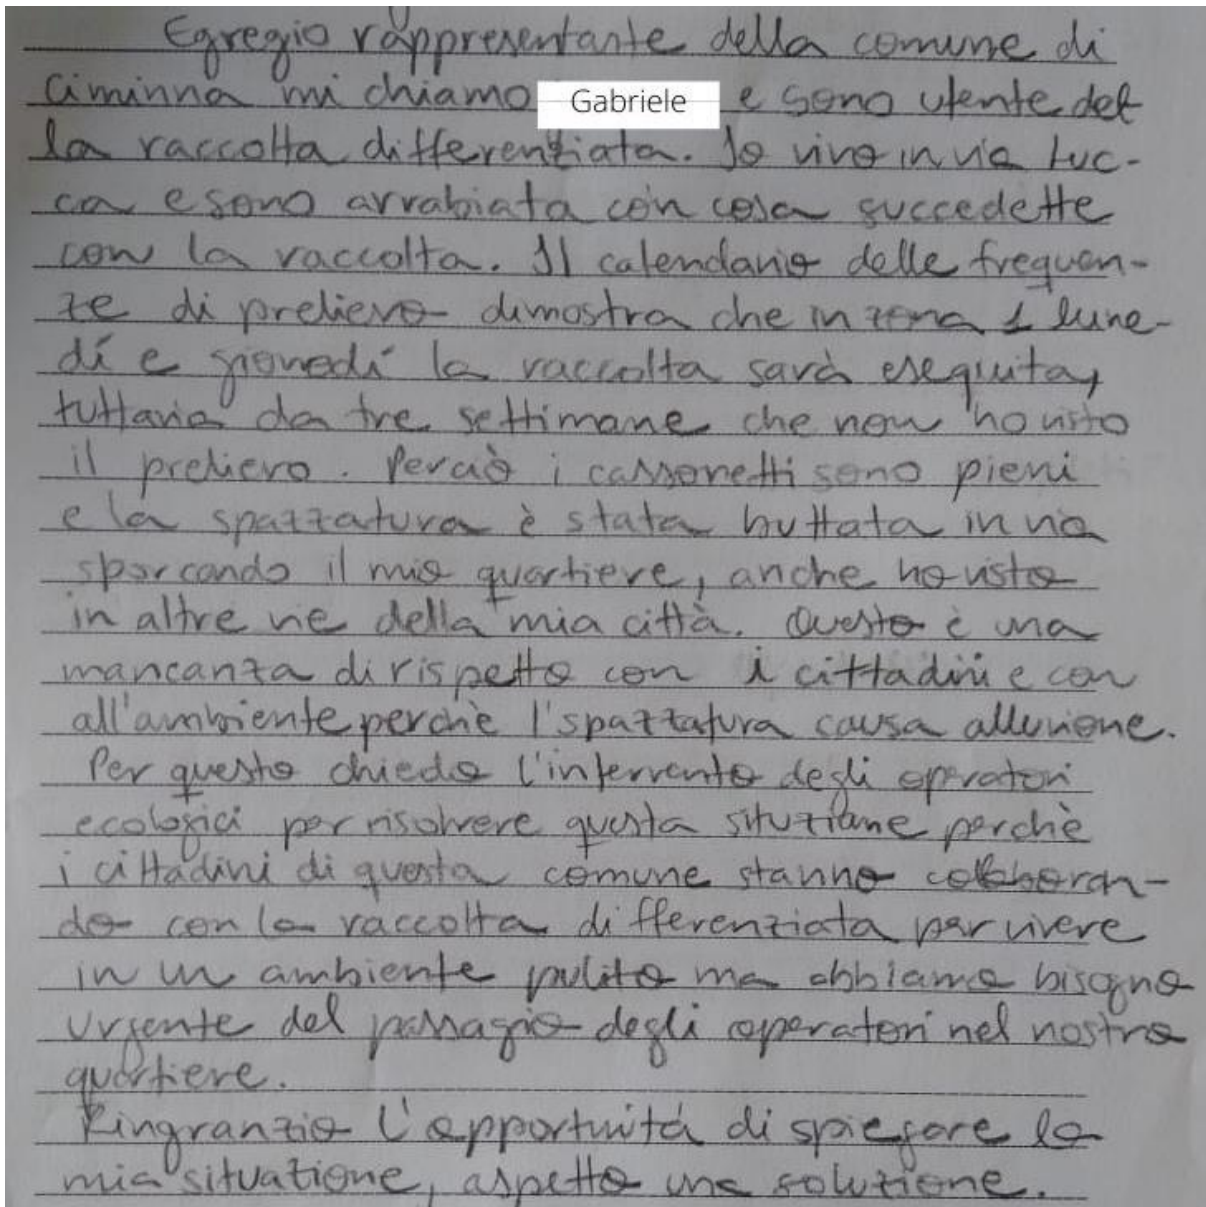 Egregio rappresentante della comune di
Ciminna mi chiamo Gabriele e sono utente del
la raccolta differenziata. Io vivo in via Luc-
ca e sono arrabiata con cosa succedette
con la raccolta. Il calendario delle frequen-
ze di prelievo dimostra che in zona 1 lune-
dí e giovedí la raccolta sarà eseguita,
tuttavia da tre settimane che non ho visto
il prelievo. Perciò i cassonetti sono pieni
e la spazzatura è stata buttata in via
sporcando il mio quartiere, anche ho visto
in altre vie della mia città. Questo è una
mancanza di rispetto con i cittadini e con
all'ambiente perchè l'spazzatura causa alluvione.
Per questo chiedo l'intervento degli operatori
ecologici per risolvere questa situziane perchè
i cittadini di questa comune stanno colaboran-
do con la raccolta differenziata per vivere
in un ambiente pulito ma abbiamo bisogno
urgente del passagio degli operatori nel nostro
quartiere.
Ringranzio l'opportunitá di spiegare la
mia situatione, aspetto una soluzione.